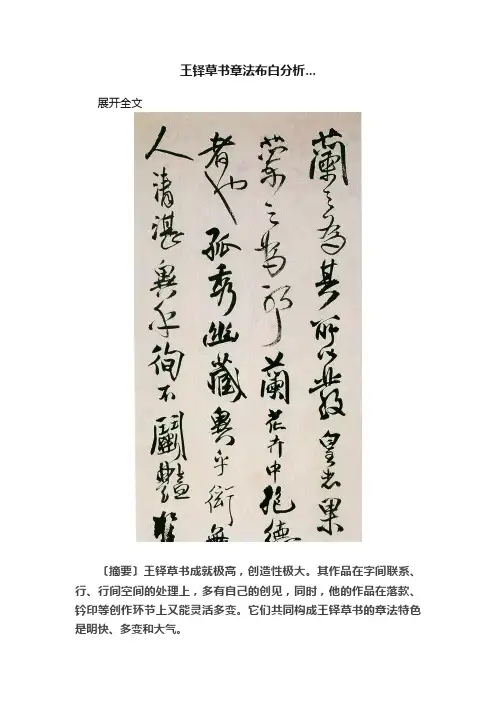 王铎草书章法布白分析...
展开全文
蘭之為其所以發皇 果
之為耶蘭花卉中抱德
者也孤秀幽藏異乎衒
人清湛異乎徇不鬭艷
〔摘要〕王铎草书成就极高，创造性极大。其作品在字间联系、
行、行间空间的处理上，多有自己的创见，同时，他的作品在落款、
钤印等创作环节上又能灵活多变。它们共同构成王铎草书的章法特色
是明快、多变和大气。